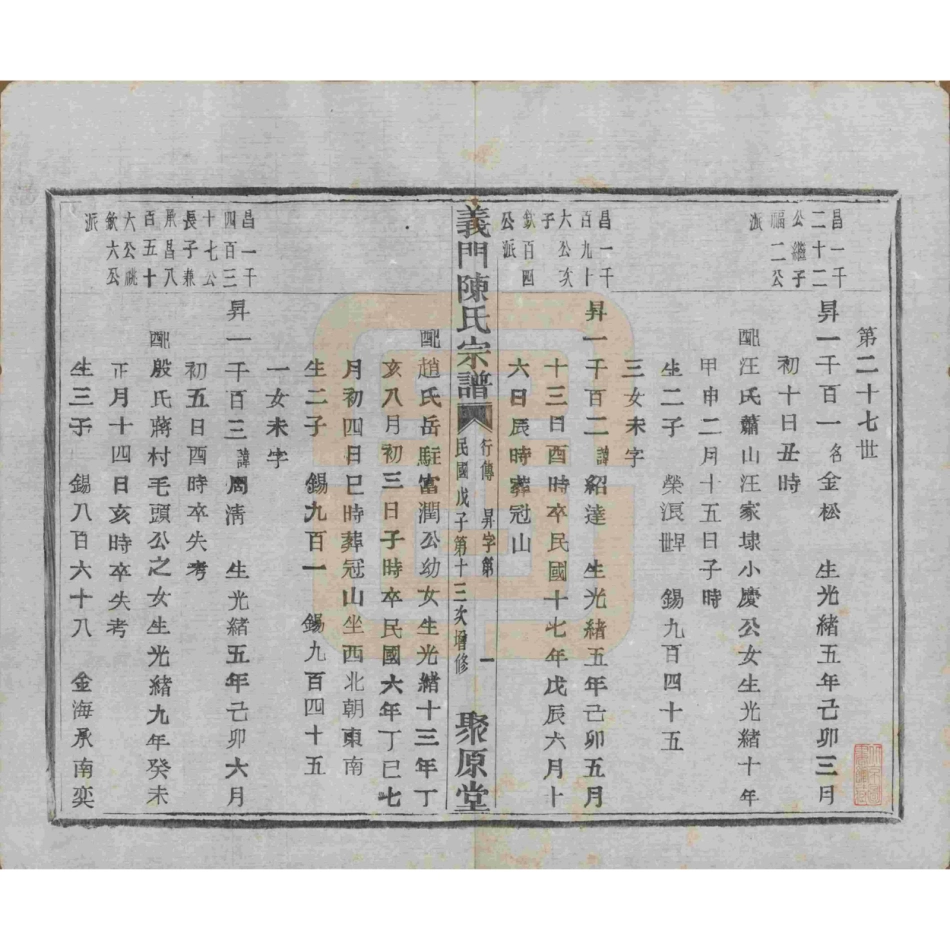 第二十七世
昌一千
二十二
公繼子
福二公
派
昇一千百一名金松　生光緒五年己卯三月
初十日丑時
配汪氏蕭山汪家埭小慶公女生光緒十年
甲申二月十五日子時
生二子　榮浪早世　錫九百四十五
三女未字
昌一千
百九十
六公次
子
欽百四
公派
昇一千百二諱紹達　生光緒五年己卯五月
十三日酉時卒民國十七年戊辰六月十
六日辰時葬冠山
義門陳氏宗譜
行傳　昇字第　一
民國戊子第十三次增修
聚原堂
配趙氏岳駐富潤公幼女生光緒十三年丁
亥八月初三日子時卒民國六年丁巳七
月初四日巳時葬冠山坐西北朝東南
生二子　錫九百一　錫九百四十五
一女未字
昌一千
四百三
十七公
長子兼
承昌八
百五十
六公祧
欽六公
派
昇一千百三諱周淸　生光緒五年己卯六月
初五日酉時卒失考
配殷氏蔣村毛頭公之女生光緒九年癸未
正月十四日亥時卒失考
生三子　錫八百六十八　金海承南奕